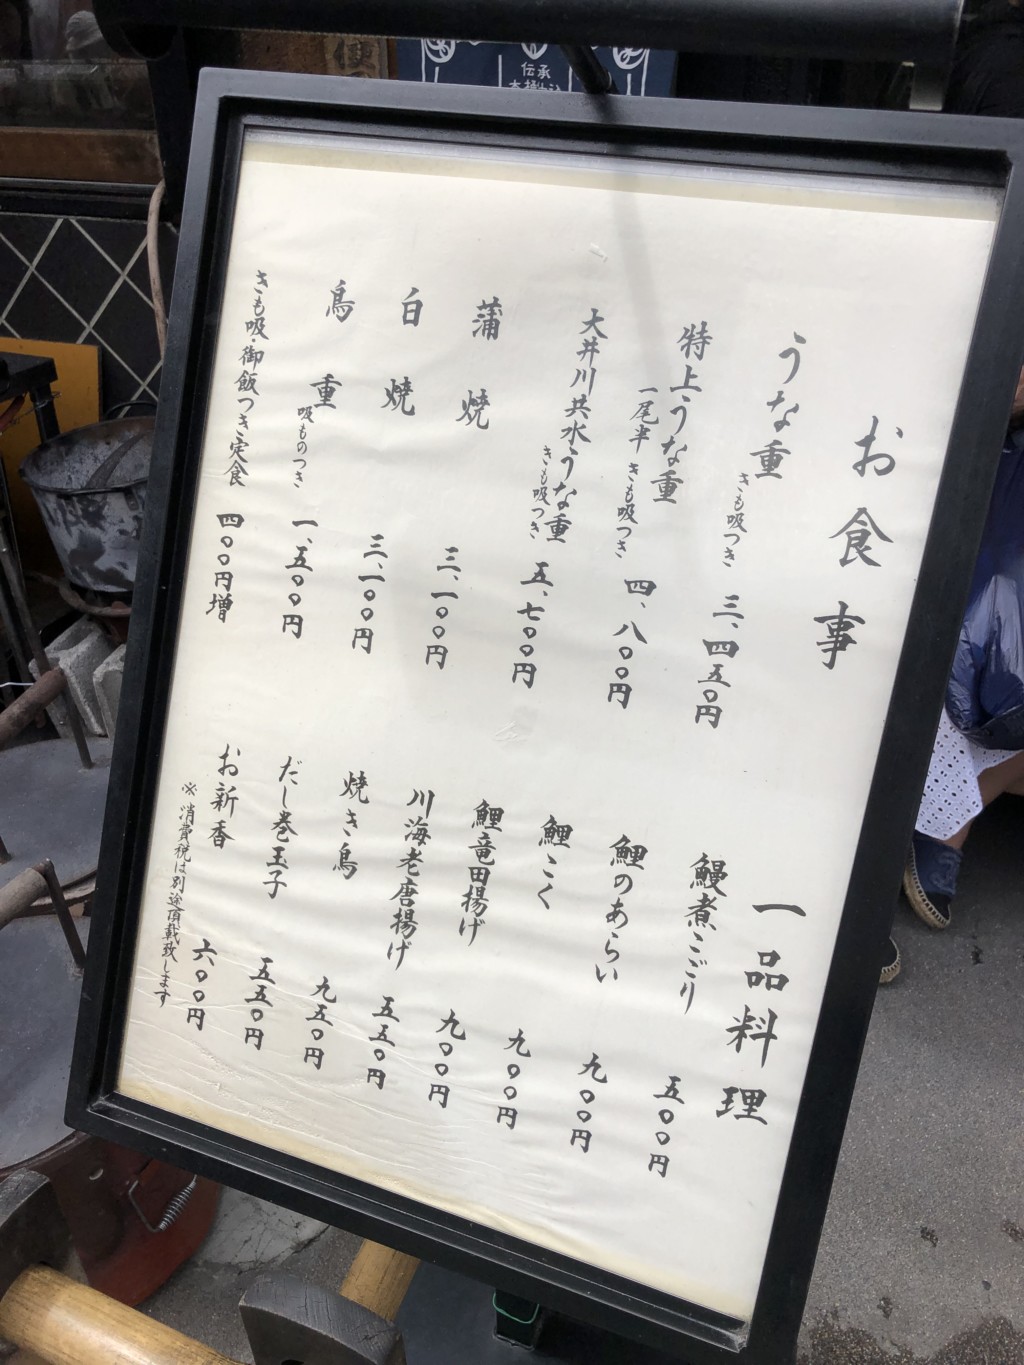 伝承
お食事
うな重 きも吸つき 三、四五〇円
特上うな重 一尾半 きも吸つき 四、八〇〇円
大井川共水うな重 きも吸つき 五、七〇〇円
蒲焼 三、一〇〇円
白焼 三、一〇〇円
鳥重 吸ものつき 一、五〇〇円
きも吸・御飯つき定食 四〇〇円増
一品料理
鰻煮こごり 五〇〇円
鯉のあらい 九〇〇円
鯉こく 九〇〇円
鯉竜田揚げ 九〇〇円
川海老唐揚げ 五五〇円
焼き鳥 九五〇円
だし巻玉子 五五〇円
お新香 六〇〇円
※消費税は別途頂戴致します